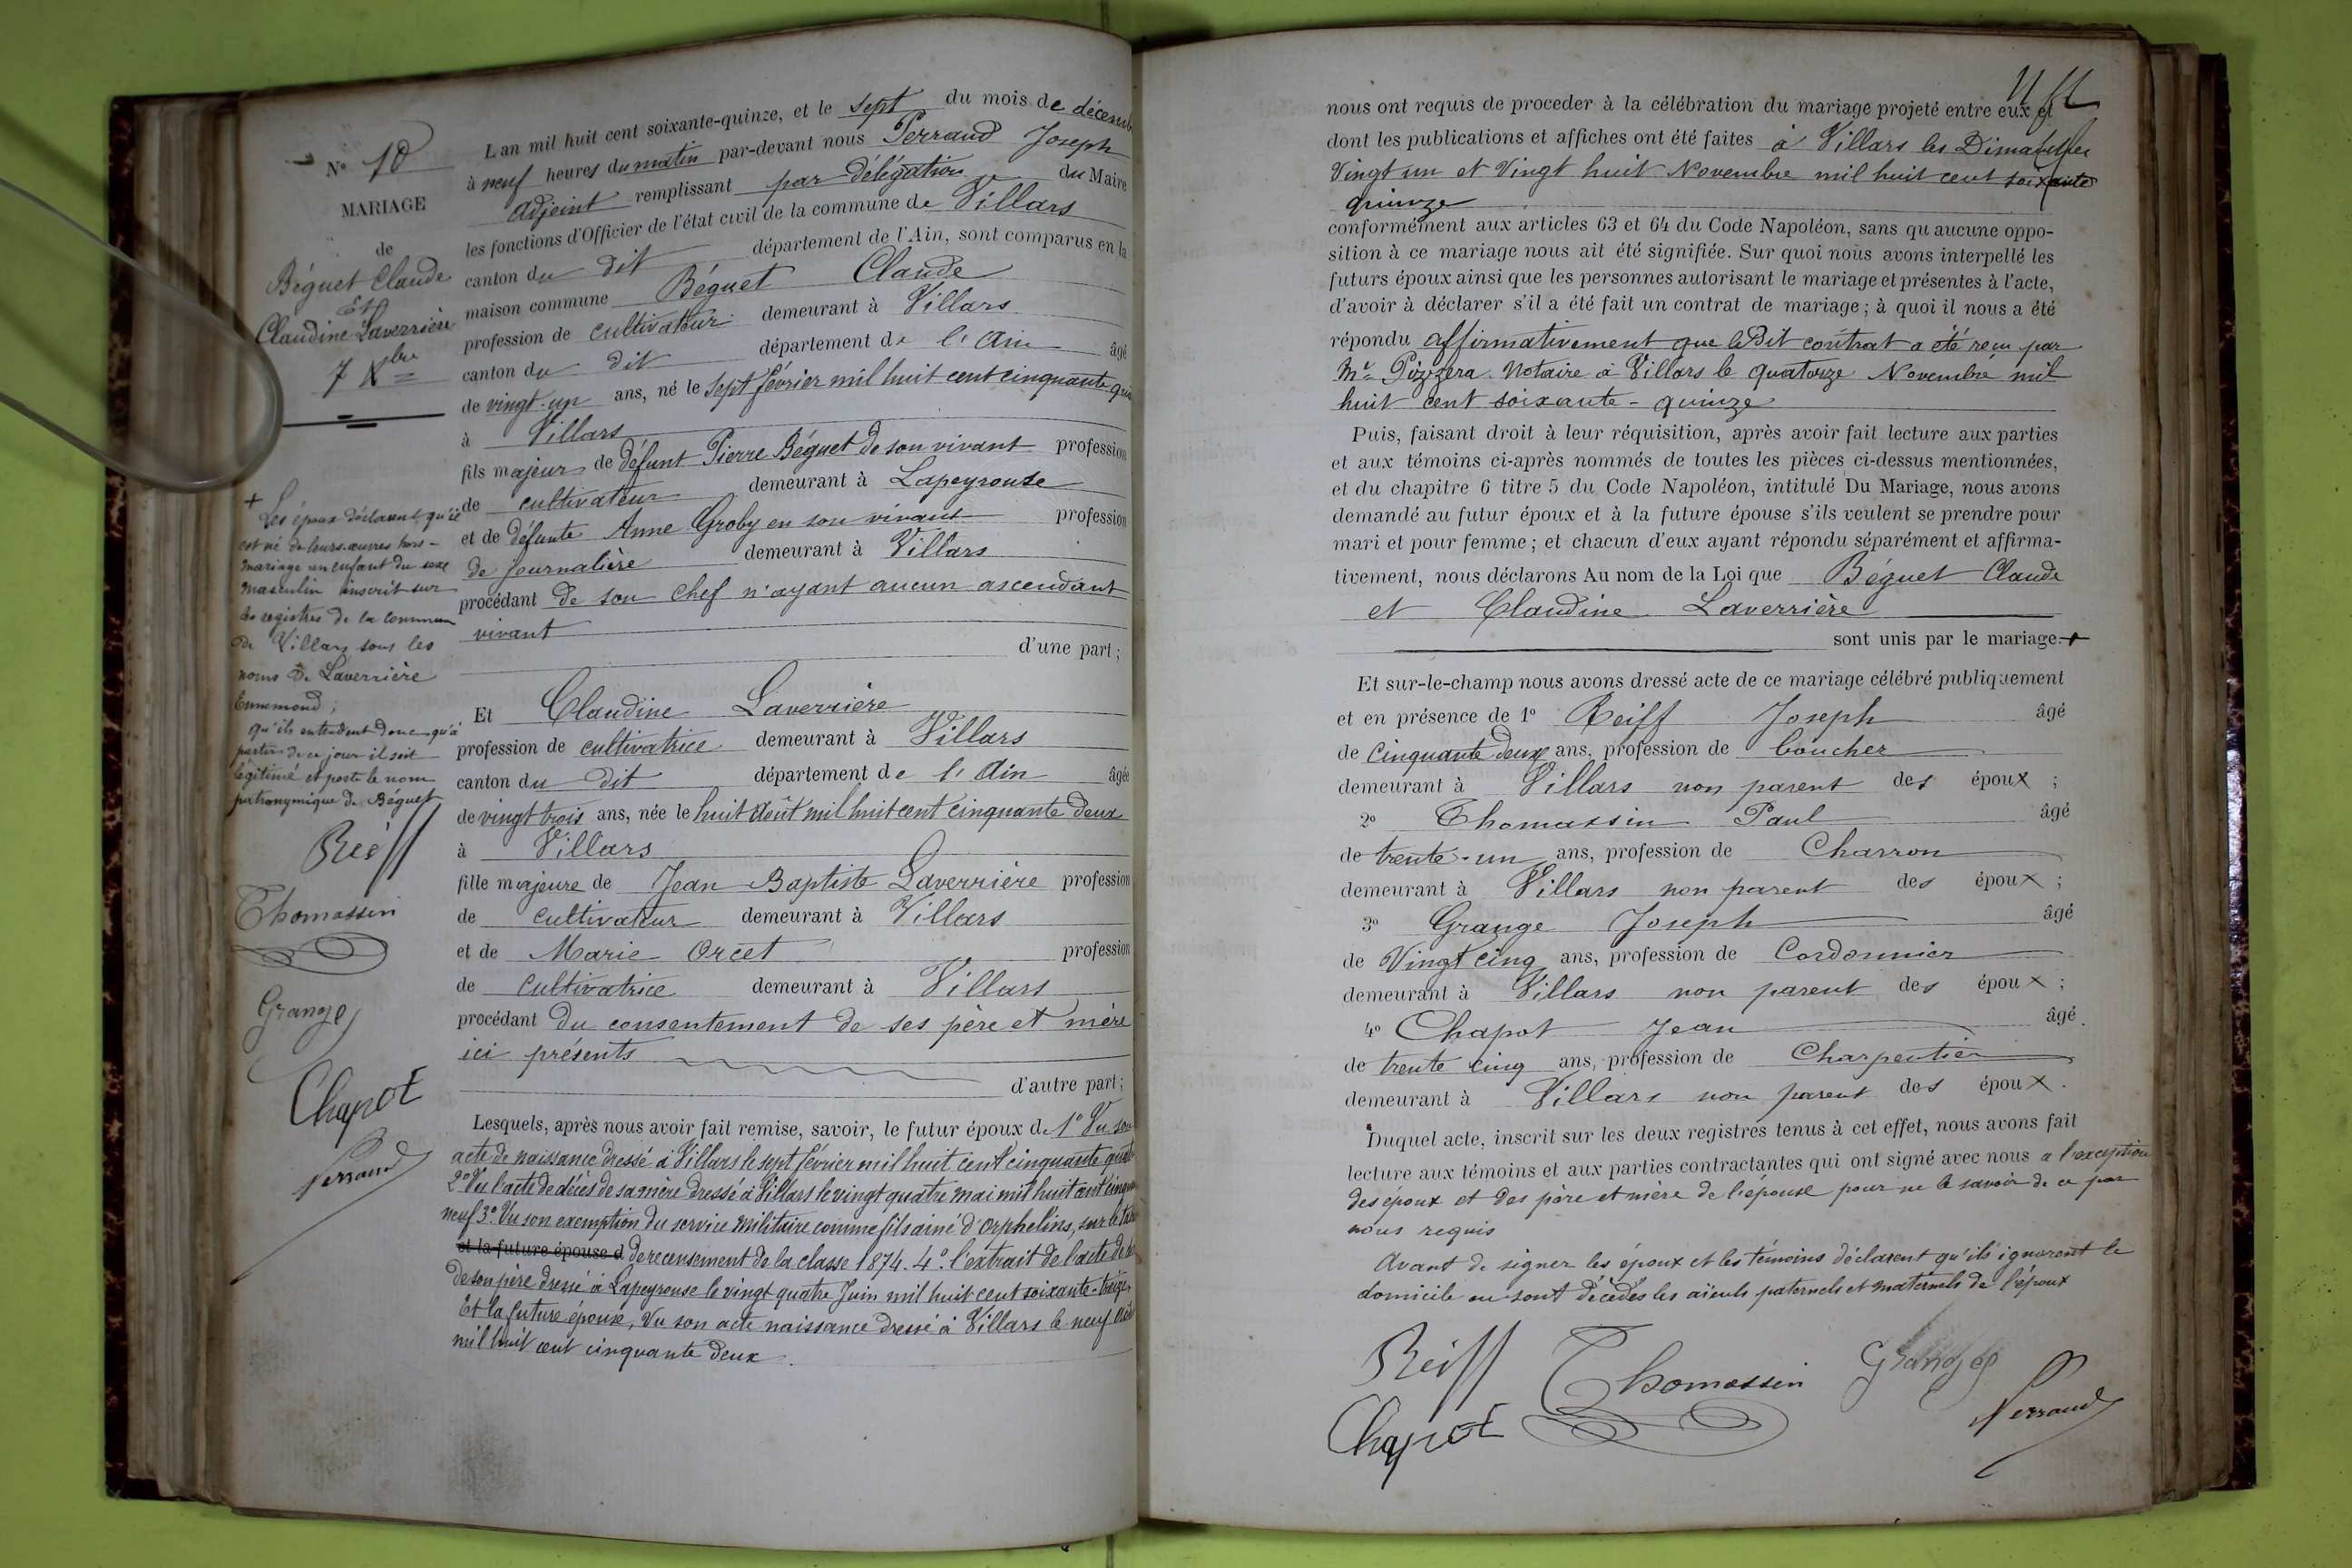 N° 10
MARIAGE
de
Béguet Claude
Et
Claudine Laverrière
7 Xbre
L'an mil huit cent soixante-quinze, et le sept du mois de décemb
à neuf heures du matin par-devant nous Perraud Joseph
adjoint remplissant par délégation du Maire
les fonctions d'Officier de l'état civil de la commune de Villars
canton du dit département de l'Ain, sont comparus en la
maison commune Béguet Claude
profession de cultivateur demeurant à Villars
canton du dit département de l'Ain âgé
de vingt-un ans, né le sept février mil huit cent cinquante qua
à Villars
fils majeur de défunt Pierre Béguet de son vivant profession
de cultivateur demeurant à Lapeyrouse
et de défunte Anne Groby en son vivant profession
de journalière demeurant à Villars
procédant de son chef n'ayant aucun ascendant
vivant
d'une part;
Et Claudine Laverrière
profession de cultivatrice demeurant à Villars
canton du dit département de l'Ain âgée
de vingt trois ans, née le huit août mil huit cent cinquante deux
à Villars
fille majeure de Jean Baptiste Laverrière profession
de cultivateur demeurant à Villars
et de Marie Orcet profession
de cultivatrice demeurant à Villars
procédant du consentement de ses père et mère
ici présents
d'autre part;
Lesquels, après nous avoir fait remise, savoir, le futur époux de 1° Vu son
acte de naissance dressé à Villars le sept février mil huit cent cinquante quat
2° Vu l'acte de décès de sa mère dressé à Villars le vingt quatre mai mil huit cent cinqua
neuf 3° Vu son exemption du service militaire comme fils ainé d'orphelins, sur le
et la future épouse d de recensement de la classe 1874. 4° l'extrait de l'acte de
de son père dressé à Lapeyrouse le vingt quatre Juin mil huit cent soixante-treize.
Et la future épouse, Vu son acte naissance dressé à Villars le neuf août
mil huit cent cinquante deux.
+ Les époux déclarent qu'il
est né de leurs œuvres hors-
mariage un enfant du sexe
masculin inscrit sur
les registres de la commune
de Villars sous les
noms de Laverrière
Ennemond;
qu'ils entendent donc qu'à
partir de ce jour il soit
légitimé et porte le nom
patronymique de Béguet
Reiff
Thomassin
Grange
Chapot
Perraud
nous ont requis de proceder à la célébration du mariage projeté entre eux et
dont les publications et affiches ont été faites à Villars les Dimanches
Vingt un et Vingt huit Novembre mil huit cent soixante
quinze
conformément aux articles 63 et 64 du Code Napoléon, sans qu'aucune oppo-
sition à ce mariage nous ait été signifiée. Sur quoi nous avons interpellé les
futurs époux ainsi que les personnes autorisant le mariage et présentes à l'acte,
d'avoir à déclarer s'il a été fait un contrat de mariage; à quoi il nous a été
répondu affirmativement que le dit contrat a été reçu par
Me Pizzera Notaire à Villars le quatorze Novembre mil
huit cent soixante-quinze
Puis, faisant droit à leur réquisition, après avoir fait lecture aux parties
et aux témoins ci-après nommés de toutes les pièces ci-dessus mentionnées,
et du chapitre 6 titre 5 du Code Napoléon, intitulé Du Mariage, nous avons
demandé au futur époux et à la future épouse s'ils veulent se prendre pour
mari et pour femme; et chacun d'eux ayant répondu séparément et affirma-
tivement, nous déclarons Au nom de la Loi que Béguet Claude
et Claudine Laverrière
sont unis par le mariage.+
Et sur-le-champ nous avons dressé acte de ce mariage célébré publiquement
et en présence de 1° Reiff Joseph âgé
de cinquante deux ans, profession de boucher
demeurant à Villars non parent des époux;
2° Thomassin Paul âgé
de trente-un ans, profession de Charron
demeurant à Villars non parent des époux;
3° Grange Joseph âgé
de Vingt cinq ans, profession de Cordonnier
demeurant à Villars non parent des époux;
4° Chapot Jean âgé
de trente cinq ans, profession de Charpentier
demeurant à Villars non parent des époux.
Duquel acte, inscrit sur les deux registres tenus à cet effet, nous avons fait
lecture aux témoins et aux parties contractantes qui ont signé avec nous à l'exception
des époux et des père et mère de l'épouse pour ne le savoir de ce par
nous requis
Avant de signer les époux et les témoins déclarent qu'ils ignorent le
domicile ou sont décédés les aïeuls paternels et maternels de l'époux
Reiff Thomassin Grange
Chapot Perraud